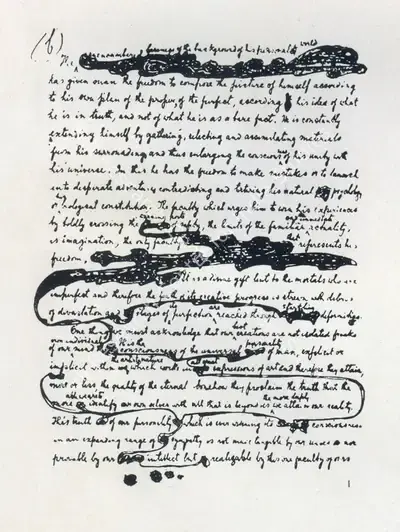 (b)
The unencumbered loneliness of the background of his personal world
has given man the freedom to compose the picture of himself according
to his own plan of the proper, of the perfect, according his idea of what
he is in truth, and not of what he is as a bare fact. He is constantly
extending himself by gathering, selecting and assimilating materials
from his surroundings and thus enlarging the consciousness of his unity with
his universe. In this he has the freedom to make mistakes or to launch
into desperate adventures contradicting and tethering his natural psychology
or biological constitution. The faculty which urges him to win his experiences
by boldly crossing the of reality, the limits of the familiar actuality,
is imagination, the only faculty that represents his
freedom.
It is a divine gift lent to the mortals who are
imperfect and therefore the path of its creative progress is strewn with debris
of devastation and stages of perfection are reached through startling deformities.
One thing we must acknowledge that our creations are not isolated freaks
of our individual mind. It is the consciousness of the universal personality of man, explicit or
implicit within us which works in the expressions of art and therefore they attain,
more or less the quality of the eternal. Somehow they proclaim the truth that the
more we identify our own selves with all that is beyond us the more deeply we attain our reality.
This truth of our personality which is ever widening its consciousness
in an expanding range of sympathy is not made tangible by our senses nor
provable by our intellect but realizable by this one faculty of ours
1